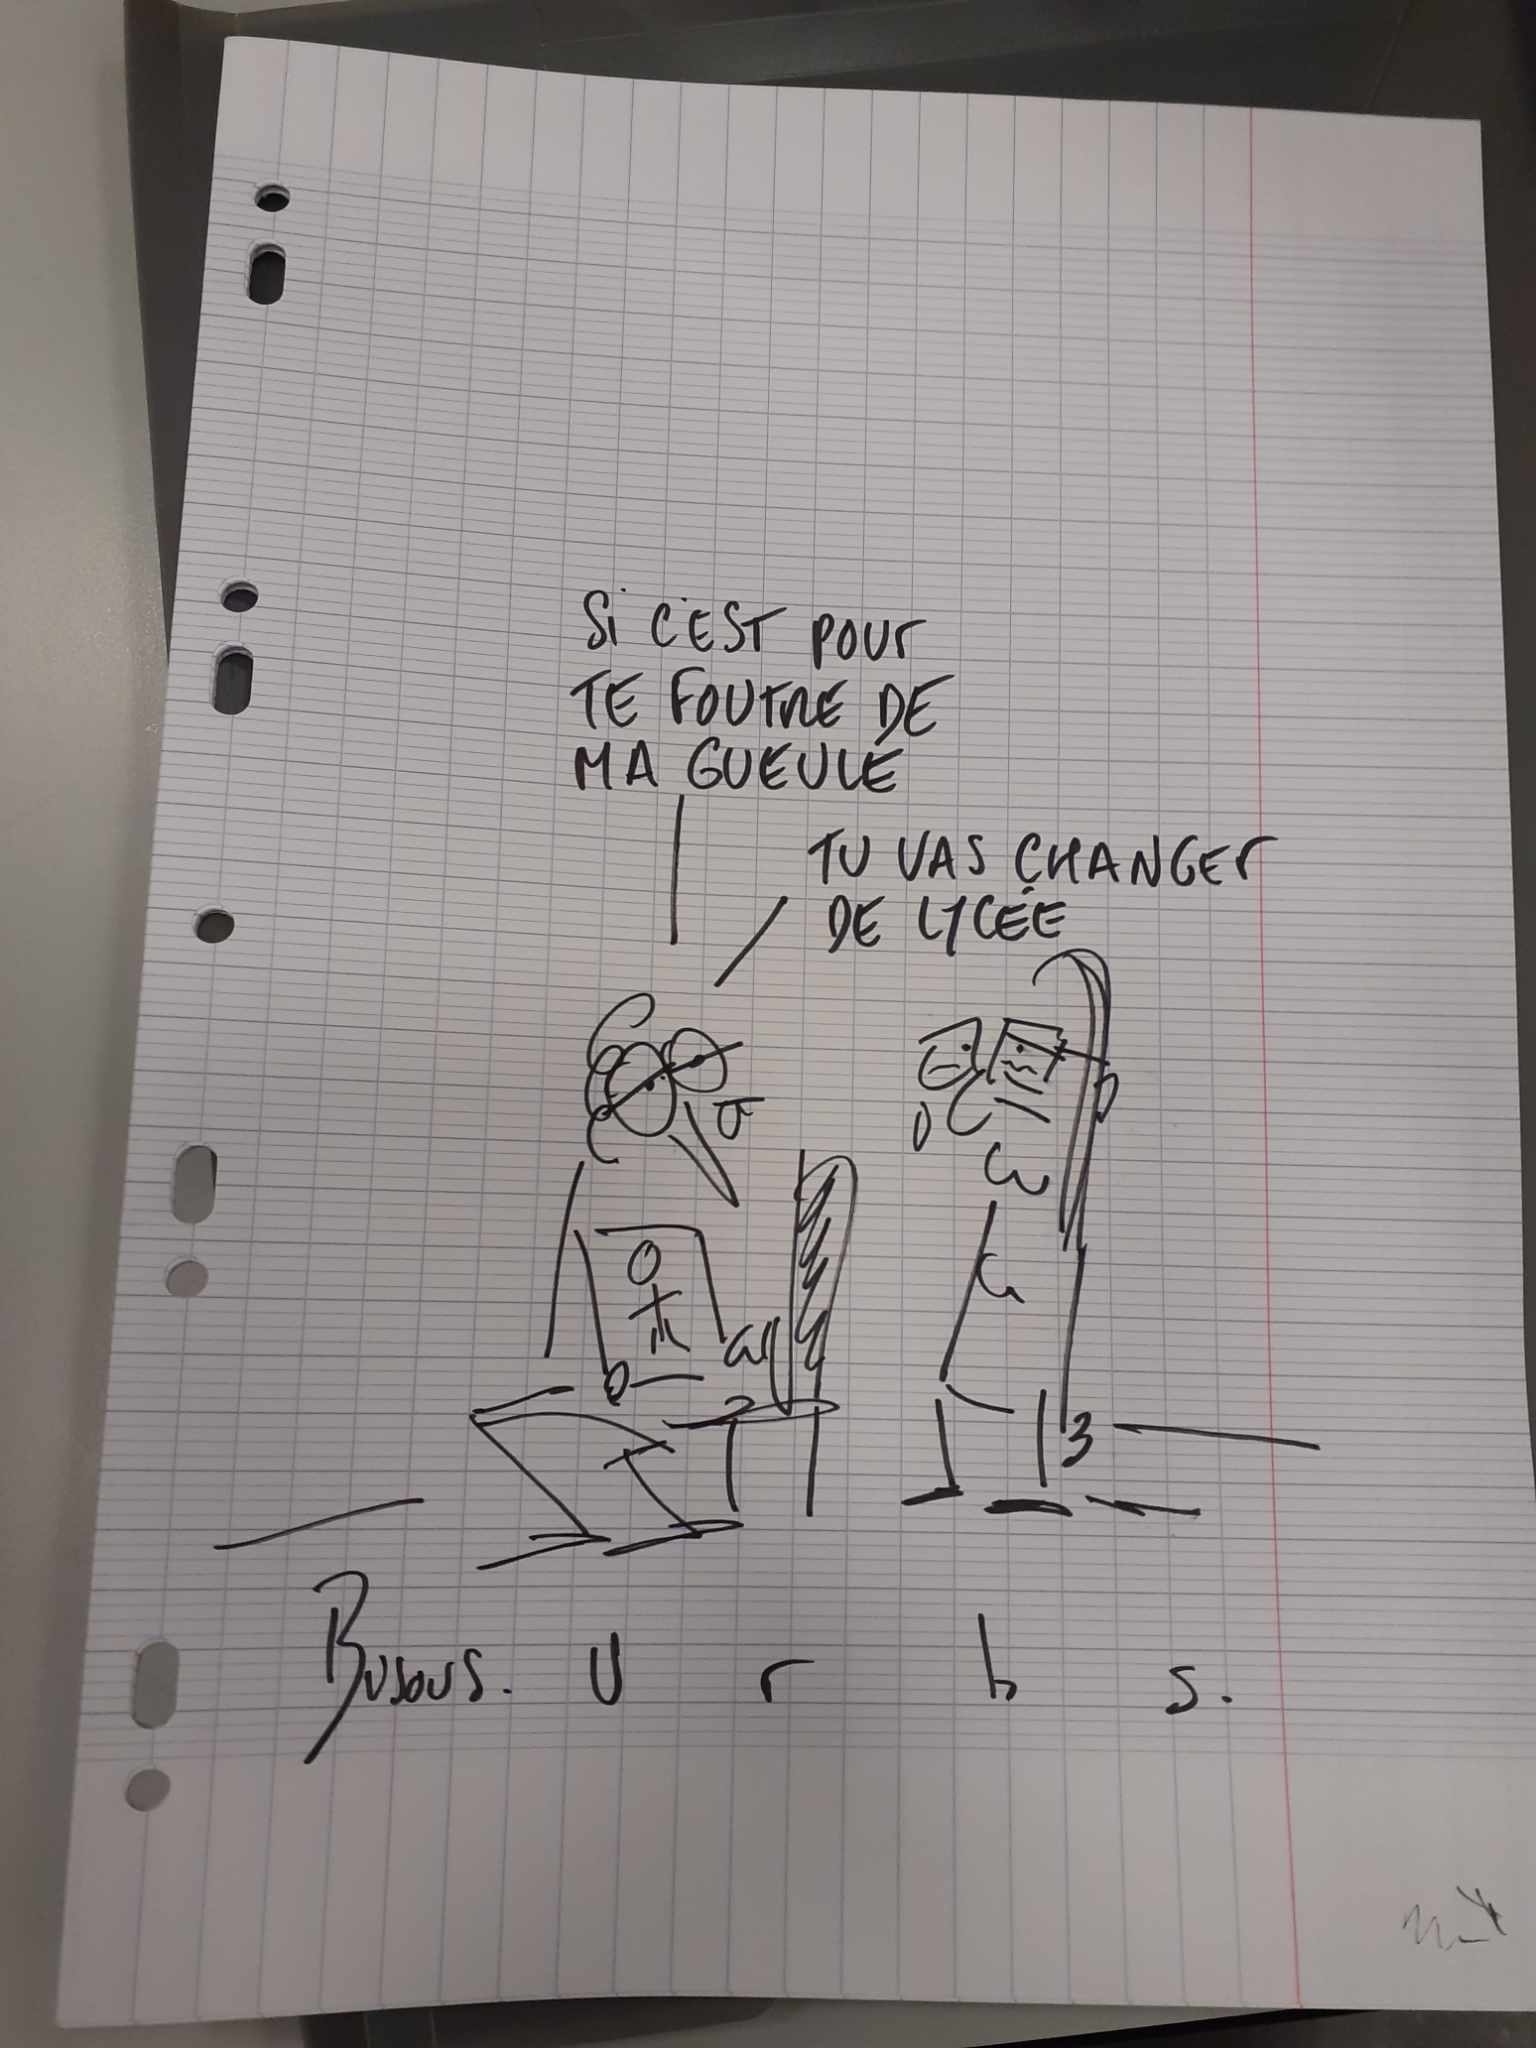 Si C'EST POUR
TE FOUTRE DE
MA GUEULE
TU VAS CHANGER
DE LYCÉE
Busous. U r b s.